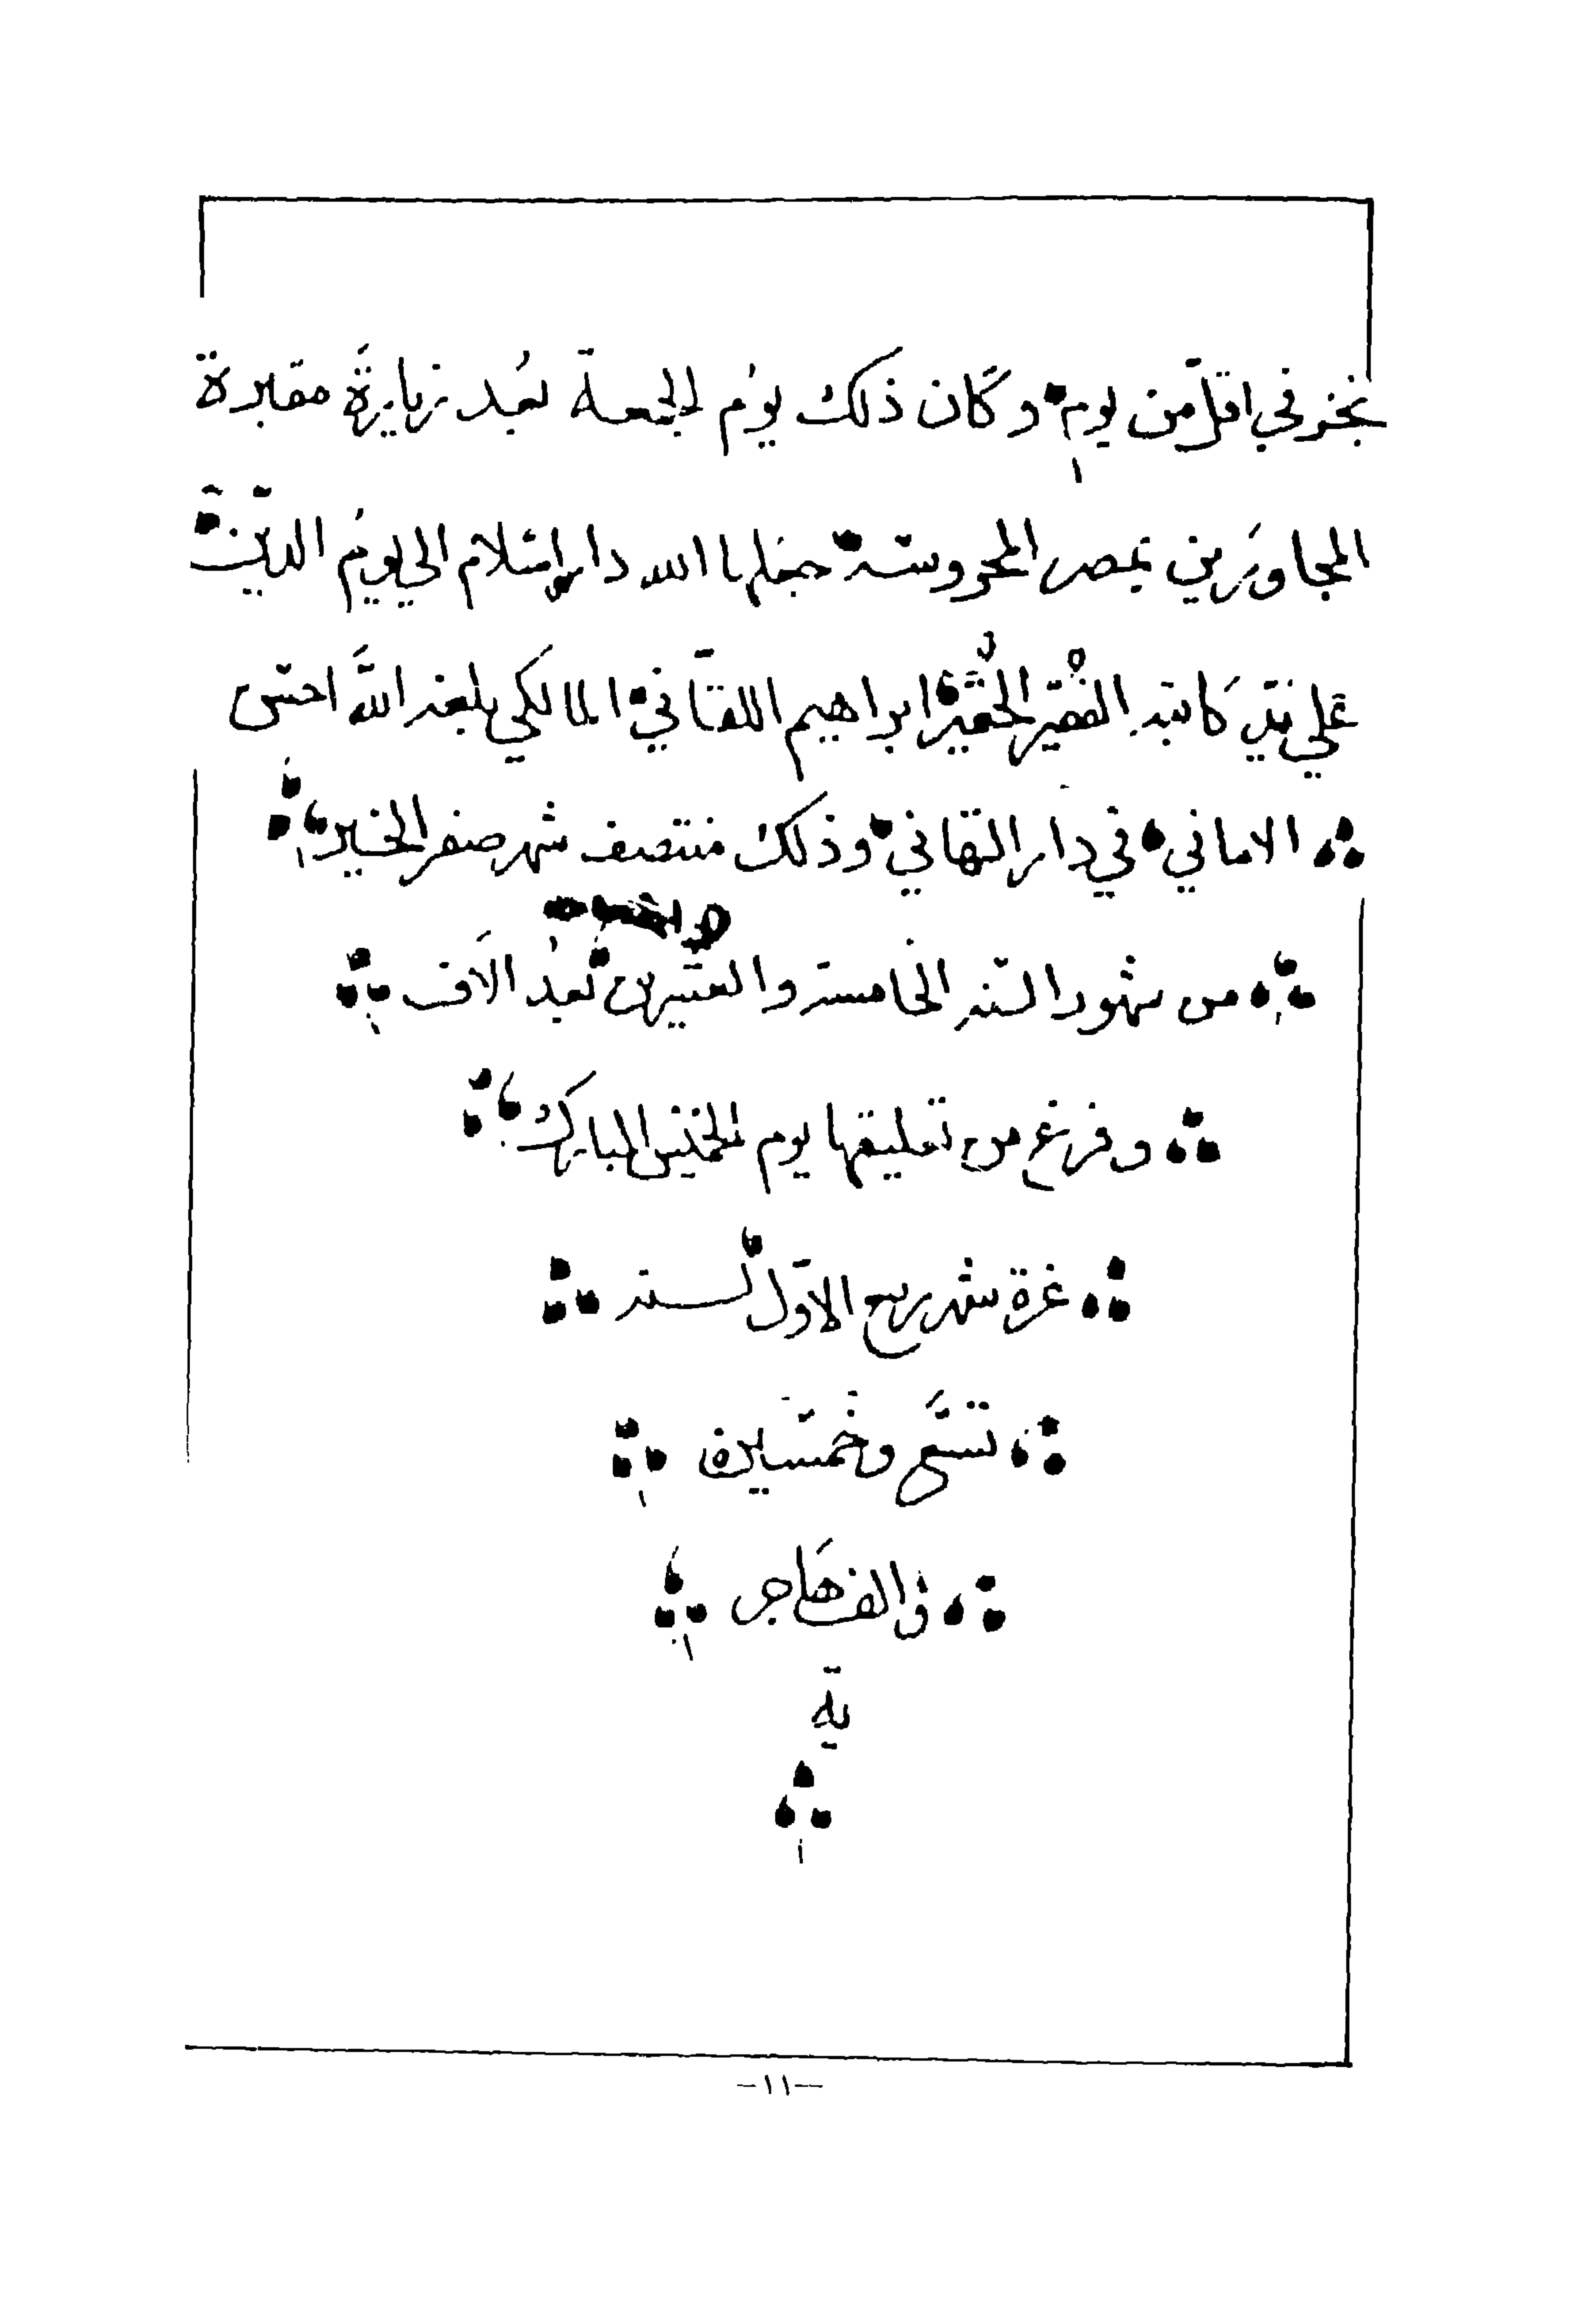 نجز في اقل من يوم وكان ذلك يوم الجمعة بعد زيارة مقبرة
المجاورين بمصر المحروسة جعلها الله دار اسلام الي يوم الدين
علي يدي كاتبه الفقير الحقير ابراهيم اللقاني المالكي بلغه الله احسن
الاماني في دار التهاني وذلك منتصف شهر صفر الخير
من شهور السنه الخامسة والعشرين بعد الالف
وفرغ من تعليقها يوم الخميس المبارك
غرة شهر ربيع الاول لسنه
تسع وخمسين
والف هاجر
ية
-١١-